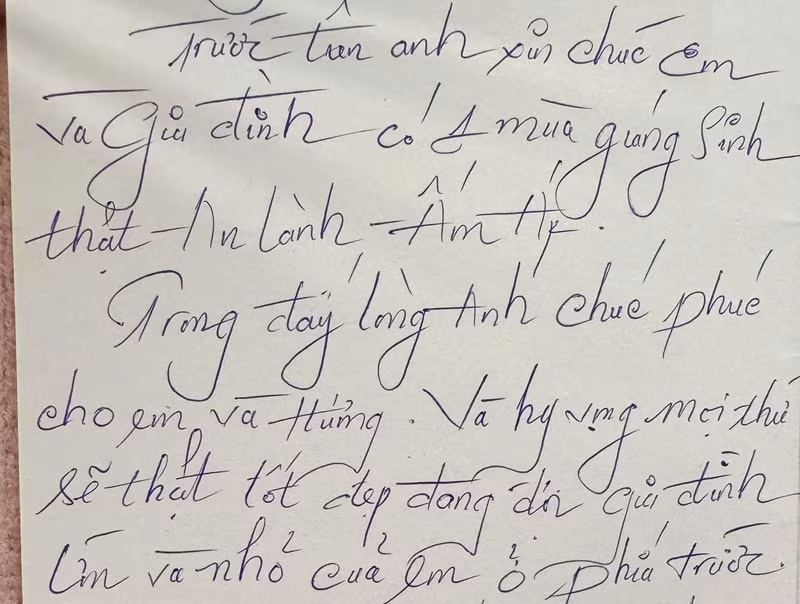 Trước tiên anh xin chúc em
và Gia đình có 1 mùa giáng sinh
thật An Lành - Ấm Áp.
Trong đáy lòng Anh chúc phúc
cho em và Hưng. Và hy vọng mọi thứ
sẽ thật tốt đẹp đang đợi gia đình
lớn và nhỏ của em ở phía trước.